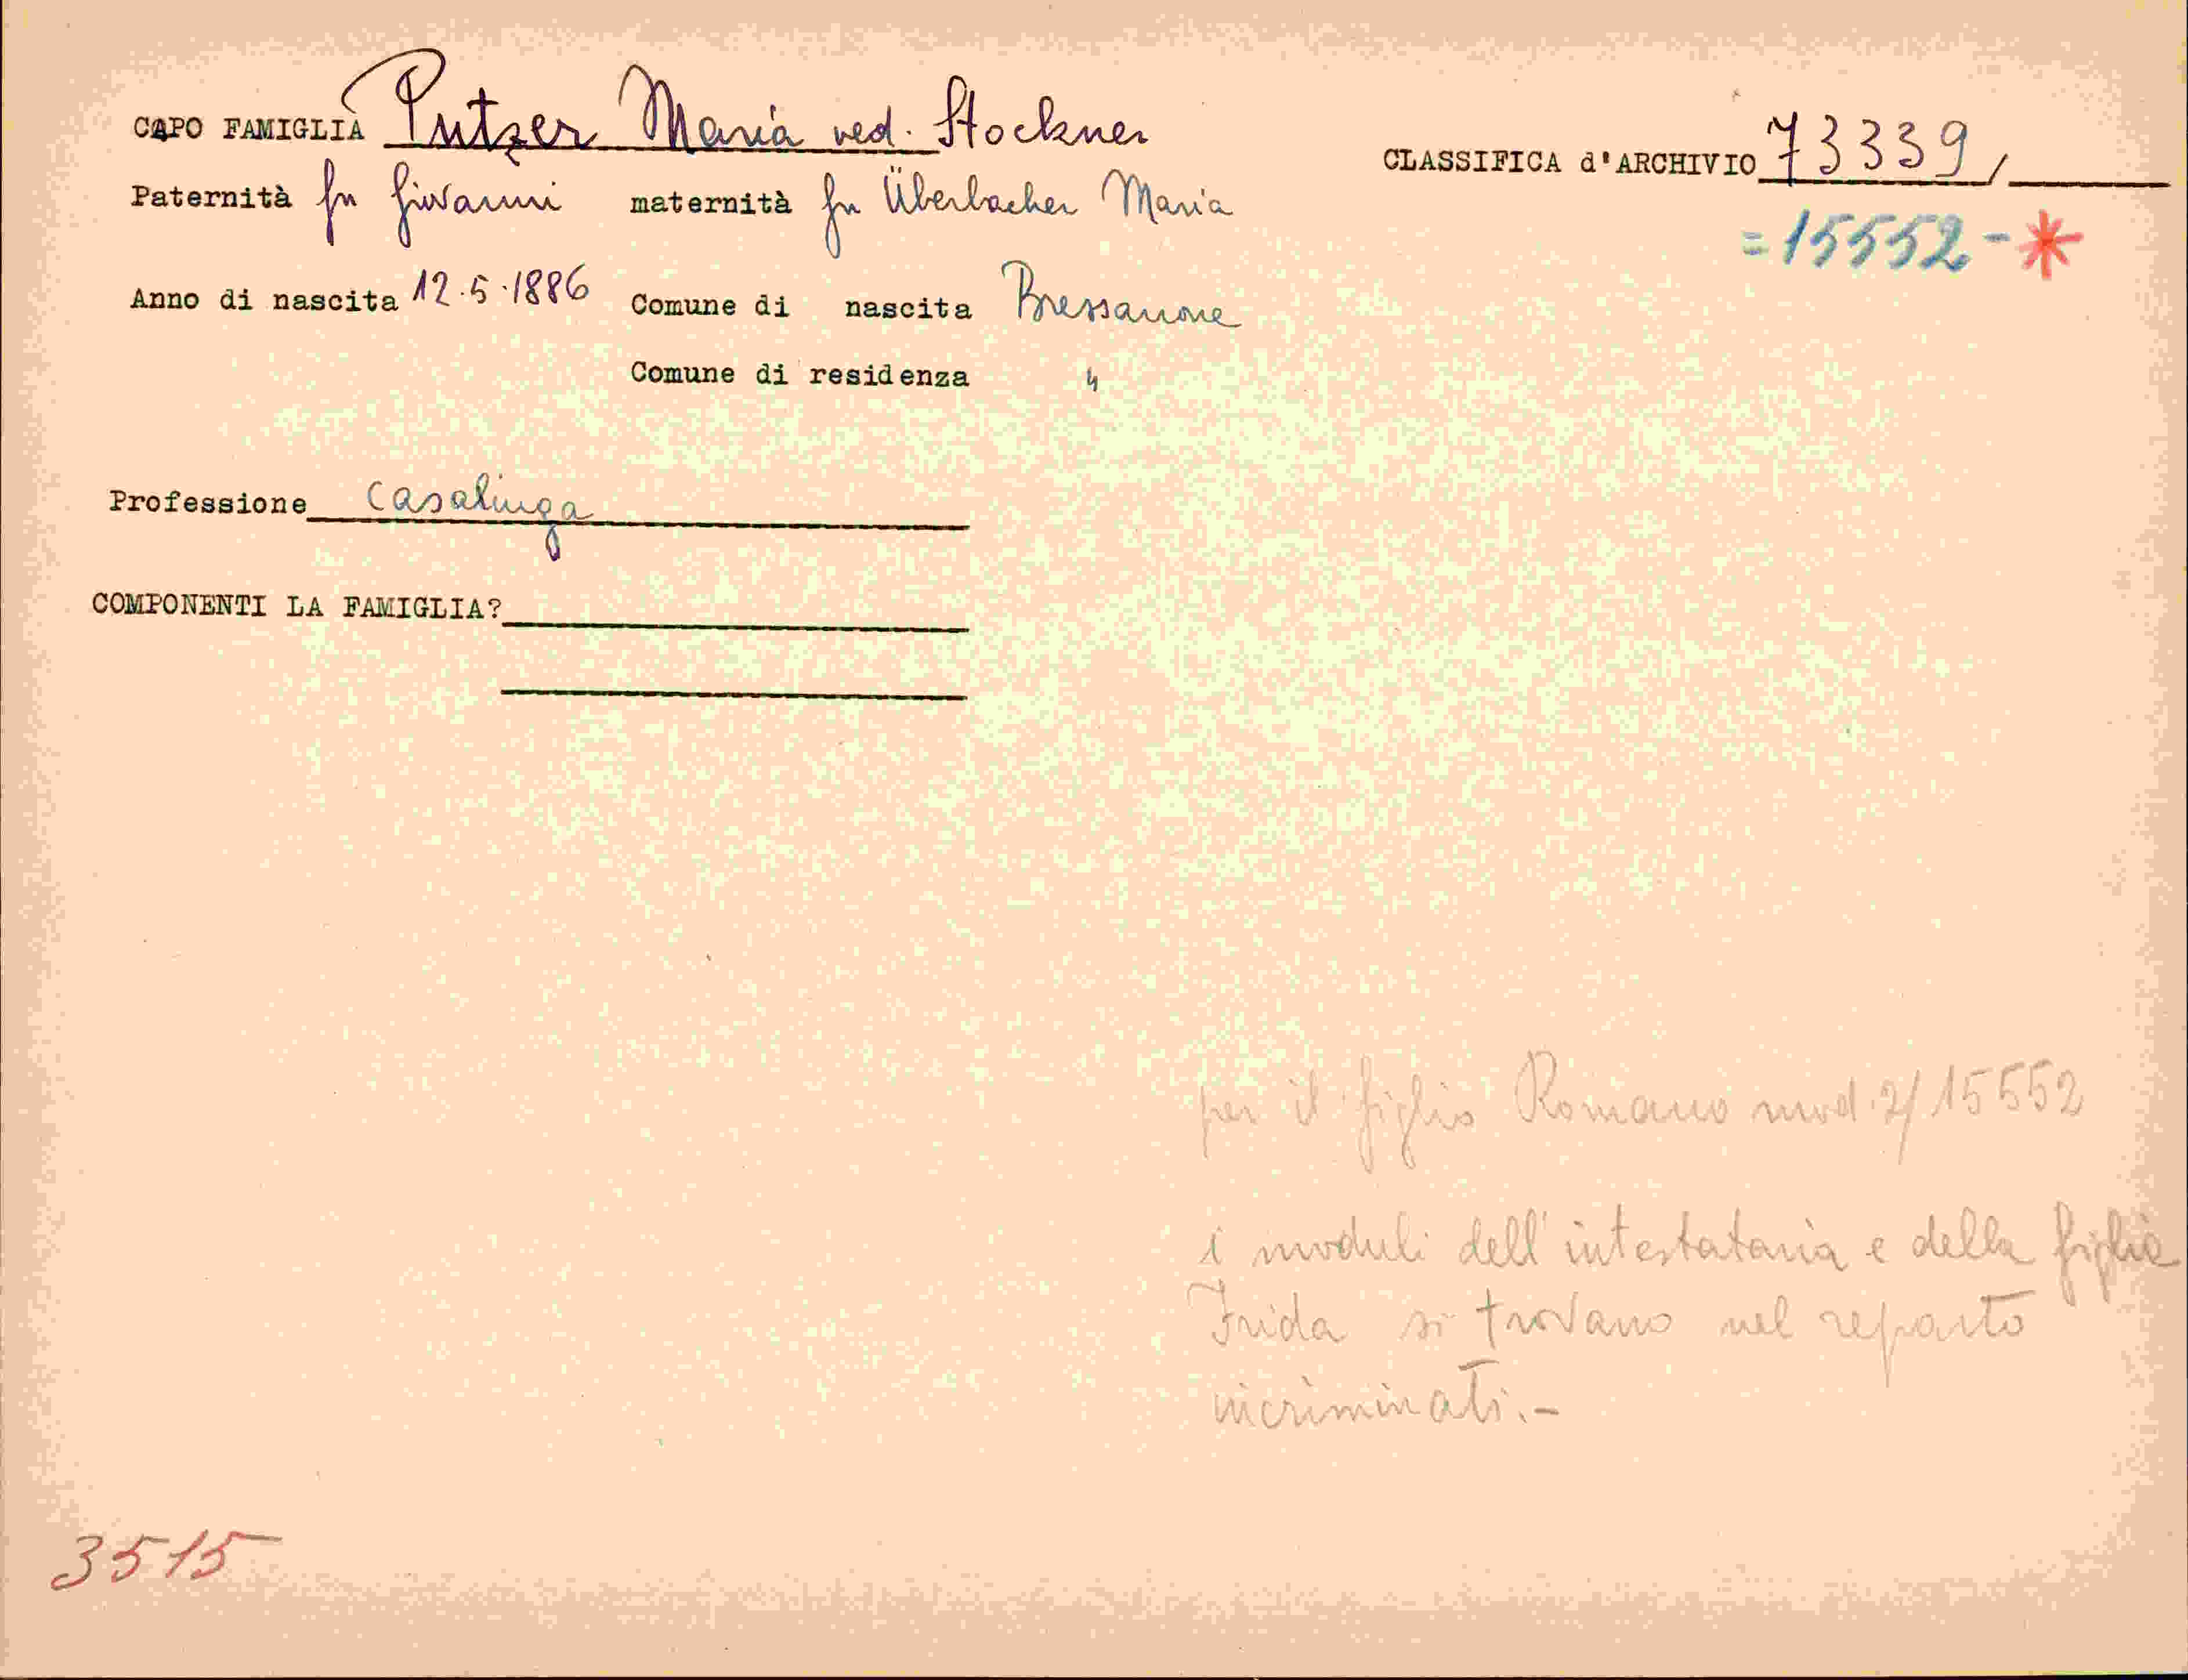 CAPO FAMIGLIA Putzer Maria ved. Stockner
CLASSIFICA d'ARCHIVIO 73339/
Paternità fu Giovanni maternità fu Überbacher Maria
=15552-*
Anno di nascita 12.5.1886 Comune di nascita Bressanone
Comune di residenza "
Professione casalinga
COMPONENTI LA FAMIGLIA?
per il figlio Romano mod. 2/15552
i moduli dell'intestataria e della figlia
Frida si trovano nel reparto
incriminati.-
3515